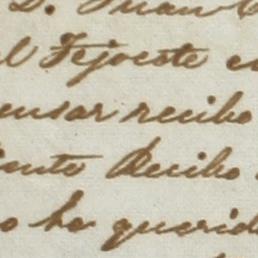 D. Juan
el Tejocote
ensar recibo
Recibo
o he querid